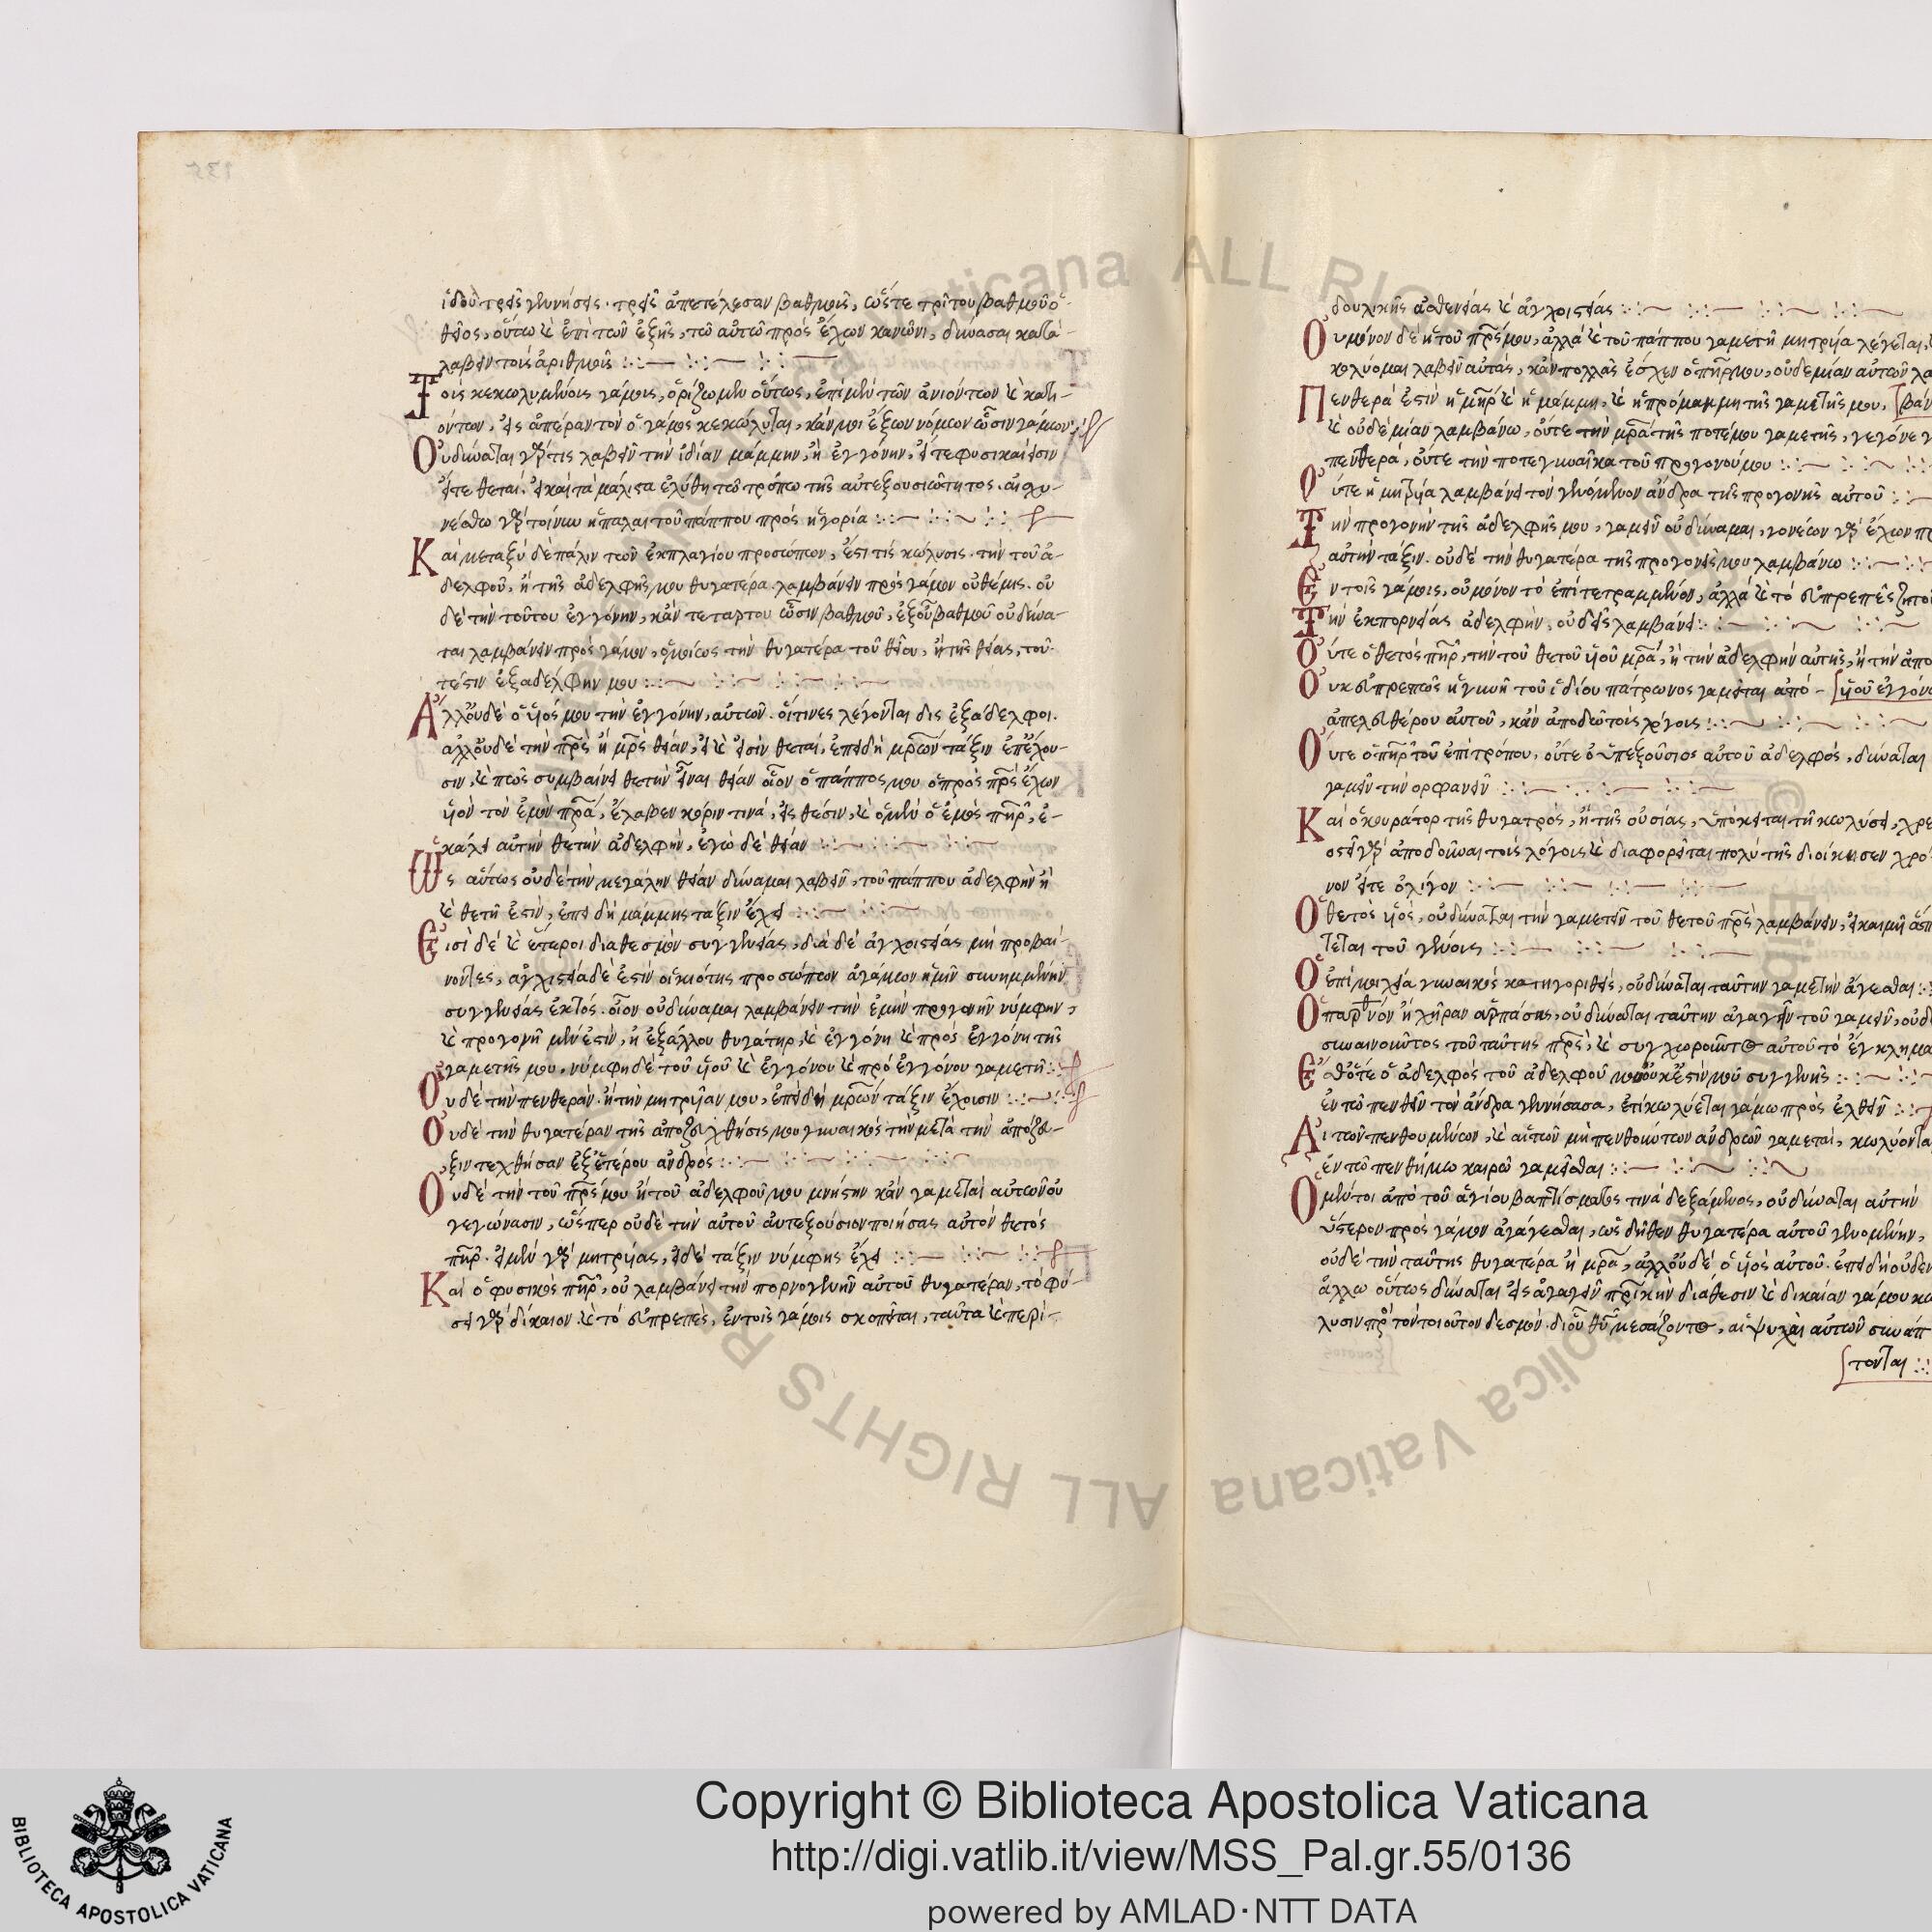 ἰδοῦ τρεῖς γεννήσεις. τρεῖς ἀπετέλεσαν βαθμοὺς, ὥστε τρίτου βαθμοῦ ὁ
θεῖος, οὕτω καὶ ἐπὶ τῶν ἑξῆς, τῶ αὐτῶ προσέχων κανῶνι, δύνασαι κατα-
λαβεῖν τοὺς ἀριθμοὺς
Τοῖς κεκωλυμένοις γάμοις, ὁρίζωμεν οὕτως, ἐπὶ μὲν τῶν ἀνιόντων καὶ κατι-
όντων, εἰς ἀπέραντον ὁ γάμος κεκώλυται, κἂν μὴ ἐξ ἐννόμων ὦσιν γάμων
Οὐ δύναται γάρ τις λαβεῖν τὴν ἰδίαν μάμμην, ἢ ἐγγόνην, εἴτε φυσικαὶ εἰσιν
εἴτε θεταὶ. εἰ καὶ τὰ μάλιστα ἐλύθη τῶ τρόπω τῆς αὐτεξουσιώτητος. αἰσχυ-
νέσθω γὰρ τοίνυν ἡ πάλαι τοῦ πάππου προσηγορία
Καὶ μεταξὺ δὲ πάλιν τῶν ἐκ πλαγίου προσώπων, ἔστι τίς κώλυσις. τὴν τοῦ ἀ-
δελφοῦ, ἢ τῆς ἀδελφῆς μου θυγατέρα λαμβάνειν πρὸς γάμον οὐ θέμις. οὐ
δὲ τὴν τούτου ἐγγόνην, κἂν τετάρτου ὦσιν βαθμοῦ, ἐξ οὗ βαθμοῦ οὐ δύνα-
ται λαμβάνειν πρὸς γάμον, ὁμοίως τὴν θυγατέρα τοῦ θείου, ἢ τῆς θείας, του-
τέσιν ἐξαδέλφην μου
Ἀλλ' οὐδὲ ὁ υἱός μου τὴν ἐγγόνην, αὐτῶν. οἵτινες λέγονται δις ἐξάδελφοι.
ἀλλ' οὐδὲ τὴν πρς ἢ μρς θείαν, εἰ καὶ εἰσὶν θεταί, ἐπειδὴ μρων τάξιν ἐπέχου-
σιν, καὶ πῶς συμβαίνει θετὴν εἶναι θείαν οἷον ὁ πάππος μου ὁ πρὸς πρς ἔχων
υἱὸν τὸν ἐμὸν πρα, ἔλαβεν κόριν τινὰ, εἰς θέσιν, καὶ ὁ μὲν ὁ ἐμὸς πηρ, ἐ-
κάλει αὐτὴν θετὴν ἀδελφὴν, ἐγὼ δὲ θείαν
Ὡς αὕτως οὐδὲ τὴν μεγάλην θείαν δύναμαι λαβεῖν, τοῦ πάππου ἀδελφὴν ἢ
καὶ θετὴ ἐστὶν, ἐπειδὴ μάμμης τάξιν ἔχει
Εἰσὶ δὲ καὶ ἕτεροι διὰ θεσμὸν συγγενείας, διὰ δὲ ἀγχιστείας μὴ προβαί-
νοντες, ἀγχιστεία δὲ ἐστὶν οἰκιότης προσώπων ἀγάμων ἡμῖν συνημμένην
συγγενείας ἐκτός. οἷον οὐ δύναμαι λαμβάνειν τὴν ἐμὴν προγονὴν νύμφην,
καὶ προγονὴ μὲν ἐστὶν, ἡ ἐξ ἄλλου θυγάτηρ, καὶ ἐγγόνη καὶ πρὸς ἐγγόνη τῆς
γαμετῆς μου, νύμφη δὲ τοῦ υἱοῦ καὶ ἐγγόνου καὶ πρὸ ἐγγόνου γαμετὴ
Οὐδὲ τὴν πενθερὰν, ἢ τὴν μητρυϊαν μου, ἐπειδὴ μρων τάξιν ἔχοισιν
Οὐδὲ τὴν θυγατέραν τῆς ἀποζευχθήσις μου γυναικὸς τὴν μετὰ τὴν ἀπόζευ-
ξιν τεχθήσαν ἐξ ἑτέρου ἀνδρὸς
Οὐδὲ τὴν τοῦ πρς μου ἢ τοῦ ἀδελφοῦ μου μνήστην κἂν γαμεταὶ αὐτῶν οὐ
γεγώνασιν, ὥσπερ οὐδὲ τὴν αὐτοῦ αὐτεξούσιον ποιήσας αὐτὸν θετὸς
πηρ. εἰ μὲν γὰρ μητρυίας, εἰ δὲ τάξιν νύμφης ἔχει
Καὶ ὁ φυσικὸς πηρ, οὐ λαμβάνει τὴν πορνογενῆν αὐτοῦ θυγατέραν, τὸ φύ-
σει γὰρ δίκαιον καὶ τὸ εὐπρεπὲς, ἐν τοῖς γάμοις σκοπεῖται, ταῦτα καὶ περὶ
δουλικῆς ἀσθενείας καὶ ἀγχοιστείας
Οὐ μόνον δὲ ἡ τοῦ πρς μου, ἀλλὰ καὶ τοῦ πάππου γαμετὴ μητρυία λέγεται,
κολύομαι λαβεῖν αὐτὰς, κἂν πολλὰς ἔσχεν ὁ πηρ μου, οὐδεμίαν αὐτῶν
Πενθερὰ ἐστὶν ἡ μηρ καὶ ἡ μάμμη, καὶ ἡ πρόμαμμη τῆς γαμετῆς μου,
καὶ οὐδὲ μίαν λαμβάνω, οὔτε τὴν μρα τῆς ποτέ μου γαμετῆς, γεγόνε
πενθερα, οὔτε τὴν ποτε γυναῖκα τοῦ προγονοῦ μου
Οὔτε ἡ μητρυία λαμβάνει τὸν γενόμενον ἄνδρα τῆς προγονῆς αὐτοῦ
Τὴν προγονὴν τῆς ἀδελφῆς μου, γαμεῖν οὐ δύναμαι, γονέων γὰρ ἔχων
αὐτὴν τάξιν. οὐδὲ τὴν θυγατέρα τῆς προγονείς μου λαμβάνω
Ἐν τοῖς γάμοις, οὐ μόνον τὸ ἐπιτετραμμένον, ἀλλὰ καὶ τὸ εὐπρεπὲς
Τὴν ἐκ πορνείας ἀδελφὴν, οὐδεὶς λαμβάνει
Οὔτε ὁ θετὸς πηρ, τὴν τοῦ θετοῦ υἱοῦ μρα, ἢ τὴν ἀδελφὴν αὐτῆς, ἢ τὴν
Οὐκ εὐπρεπῶς ἡ γυνὴ τοῦ ἰδίου πάτρωνος γαμεῖται ἀπό-
ἀπελευθέρου αὐτοῦ, κἂν ἀποδῶ τοὺς λόγοις
Οὔτε ὁ πηρ τοῦ ἐπιτρόπου, οὔτε ὁ ὑπεξούσιος αὐτοῦ ἀδελφὸς, δύναται
γαμεῖν τὴν ορφανεὶν
Καὶ ὁ κουράτορ τῆς θυγατρὸς, ἢ τῆς οὐσίας, ὑπόκειται τῆ κωλύσει,
σει γὰρ ἀποδοῦναι τοὺς λόγοις καὶ διαφορεῖται πολὺ τῆς διοίκησεν
νον εἴτε ὀλίγον
Ὁ θετὸς υἱὸς, οὐ δύναται τὴν γαμετὴν τοῦ θετοῦ πρς λαμβάνειν,
τεται τοῦ γένοις
Ὁ ἐπὶ μοιχεία γυναικὸς κατηγορηθεὶς, οὐ δύναται ταύτην γαμετὴν ἄγεσθαι
Ὁ παρθένον ἢ χήραν ἁρπάσης, οὐ δύναται ταύτην ἀγαγεῖν τοῦ γαμεῖν,
συναινοῦντος τοῦ ταύτης πρς, καὶ συγχωροῦντος αὐτοῦ τὸ
ὁ ἀδελφὸς τοῦ ἀδελφοῦ συγγενὴς
ἐν τῶ πενθεῖν τὸν ἄνδρα γεννήσασα, ἐπικωλύεται γάμω προσελθεῖν
Αἱ τῶν πενθουμένων, καὶ αἱ τῶν μὴ πενθούντων ἀνδρῶν γαμεταὶ,
ἐν τῶ πενθήμω καιρῶ γαμεῖσθαι
Ὁ μέντοι ἀπὸ τοῦ ἁγίου βαπτίσματος τινὰ δεξάμενος, οὐ δύναται αὐτὴν
ὕστερον πρὸς γάμον ἀγάγεσθαι, ὡς δῆθεν θυγατέρα αὐτοῦ γενομένην,
οὐδὲ τὴν ταύτης θυγατέρα ἢ μρα, ἀλλ' οὐδὲ ὁ υἱὸς αὐτοῦ. ἐπειδὴ οὐδὲν
ἄλλω οὕτως δύναται εἰσαγαγεῖν πρικὴν διάθεσιν καὶ δικαίαν γάμου
λυσιν πρὸ τὸν τοιοῦτον δεσμόν. δι' οὗ θυ μεσάζοντος, αἱ ψυχαὶ αὐτῶν συνάπ
τονται
Copyright © Biblioteca Apostolica Vaticana
http://digi.vatlib.it/view/MSS_Pal.gr.55/0136
powered by AMLAD·NTT DATA
BIBLIOTECA APOSTOLICA VATICANA